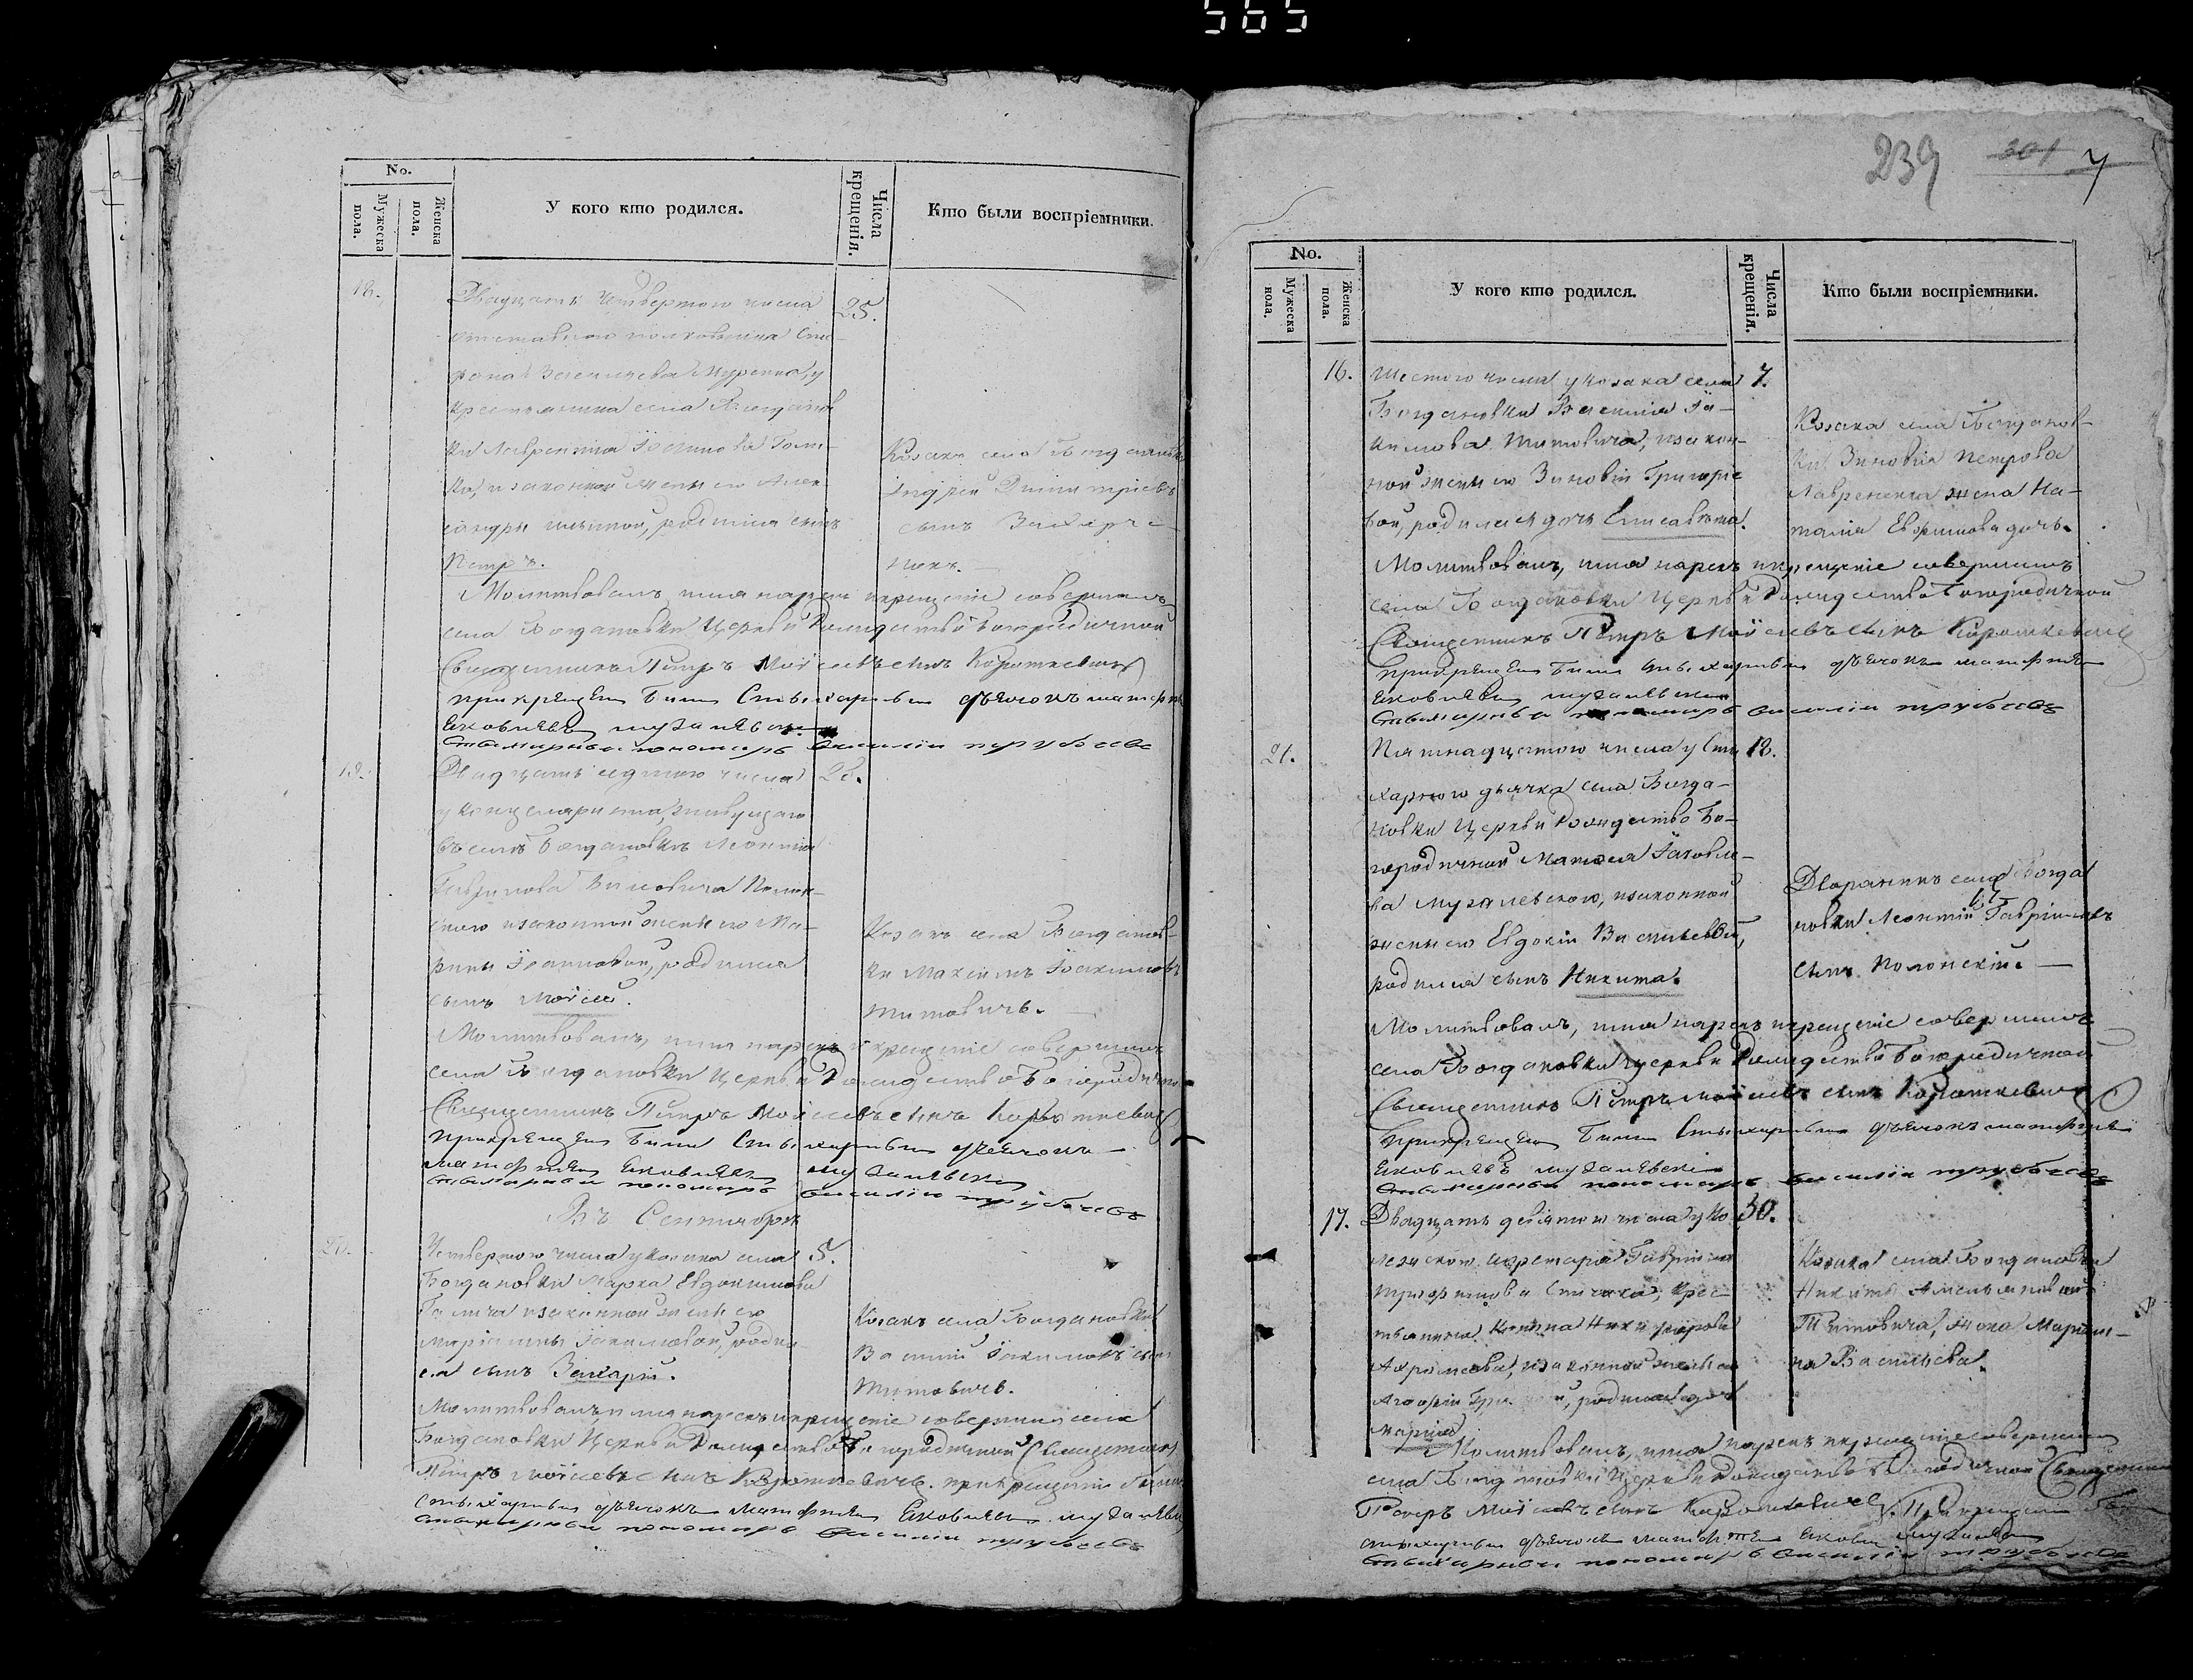 565
No.
Мужеска пола.
Женска пола.
У кого кто родился.
Числа крещенія.
Кто были воспріемники.
18.
Двадцать четвертого числа
25.
отставного полковника
у
крестьянина села Богданов
ки Лаврентия
ки, изаконной жены его Алек
сандры родился сынъ
Петръ.
Козакъ села Богдановки
Андрей Димитріевъ
сынъ Захарче
нокъ.
Молитвовалъ, имя нарекъ икрещеніе совершилъ
села Богдановки Церкви Рождество Богородичной
Священникъ Петръ Моисеевъ сынъ Короткевичъ
прикрещен были Стихарный дьячокъ матфей
яковлевъ
Стихарный пономарь василій трубаевъ
19.
Двадцать седмого числа
28.
у концеляриста, живущаго
въ селѣ Богдановкѣ Леонтия
Гаврилова Полон-
ского изаконной жены его Ма-
рины Іоанновой, родился
сынъ Моисей.
Козакъ села Богданов-
ки Максимъ Іоакимовъ
Титовичъ.
Молитвовалъ, имя нарекъ и крещеніе совершилъ
села Богдановки Церкви Рождество Богородично
Священникъ Петръ Моисеевъ сынъ Короткевичъ
прикрещен были Стихарный дьячокъ
матфей яковлевъ
Стихарный пономарь василій трубаевъ
Въ Сентябрѣ
20.
Четвертого числа укозака села
5.
Богдановки Марка Евдокимова
изаконной жены его
Маріанны Іакимовой, роди
лся сынъ Захарій.
Козакъ села Богдановки
Василій Іакимовъ сынъ
Титовичъ.
Молитвовалъ имя нарекъ икрещеніе совершилъ села
Богдановки Церкви Рождество Богородичной Священникъ
Петръ Моисеевъ сынъ Короткевичъ. прикрещеніи были
Стихарный дьячокъ матфей яковлевъ
Стихарный пономарь василій трубаевъ
239 301 7
No.
Мужеска пола.
Женска пола.
У кого кто родился.
Числа крещенія.
Кто были воспріемники.
16.
Шестого числа укозака села
7.
Богдановки Василия Іа-
кимова Титовича, изакон-
ной жены его Зиновіи Григорье
вой, родилася дочь Елисавета.
Козака села Богданов-
ки Зиновія Петрова
Лавренска жена На-
талія Евфимова дочь.
Молитвовалъ, имя нарекъ икрещеніе совершилъ
села Богдановки Церкви Рождество Богородичной
Священникъ Петръ Моисеевъ сынъ Короткевичъ
прикрещен были Стихарный дьячокъ матфей
яковлевъ
Стихарный пономарь василій трубаевъ
21.
Пятнадцатого числа у Сти
18.
харного дьячка села Богда-
новки Церкви Рождество Бо-
городичной Матфея Іаковле-
ва изаконной
жены его Евдокіи Васильевой,
родился сынъ Никита.
Дворянинъ села Богда
новки Леонтій Гавриловъ
сынъ Полонскій.
Молитвовалъ, имя нарекъ икрещеніе совершилъ
села Богдановки Церкви Рождество Богородичной
Священникъ Петръ Моисеевъ сынъ Короткевичъ
прикрещен были Стихарный дьячокъ матфей
яковлевъ
Стихарный пономарь василій трубаевъ
17.
Двадцать девятого числа уко
30.
лежского секретаря Гавриила
Крес-
тьянина
изаконной жены его
родилася дочь
Марія
Козака села Богдановки
Никиты
Титовича, жена Маріан-
на Васильева.
Молитвовалъ, имя нарекъ икрещеніе совершилъ
села Богдановки Церкви Рождество Богородичной Священникъ
Петръ Моисеевъ сынъ Короткевичъ. Прикрещен
Стихарный дьячокъ матфей яковлевъ
Стихарный пономарь василій трубаевъ